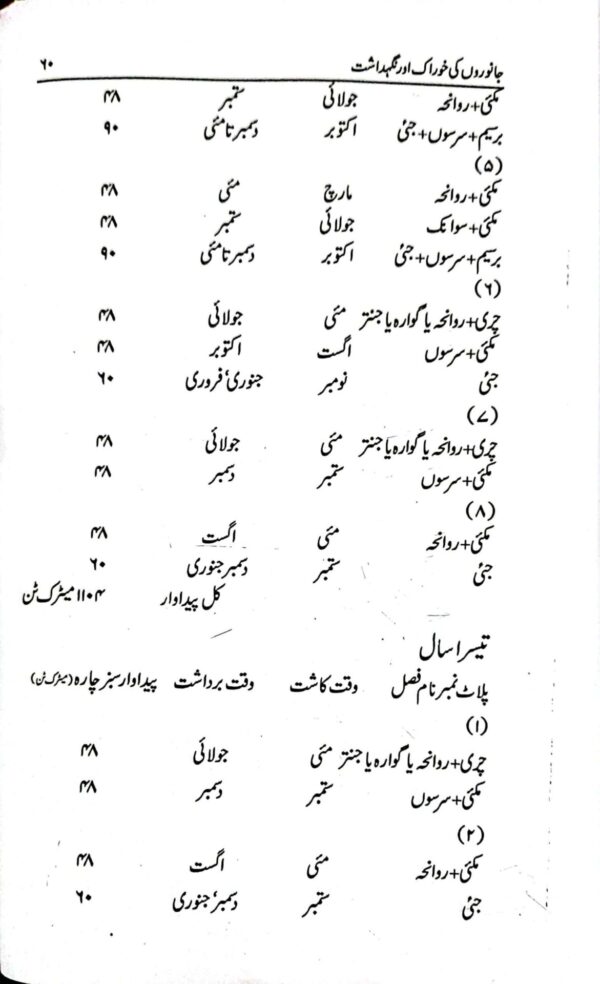 جانوروں کی خوراک اور نگہداشت ۶۰
مکئی+روانحہ جولائی ستمبر ۴۸
برسیم+سرسوں+جئی اکتوبر دسمبر تا مئی ۹۰
(۵)
مکئی+روانحہ مارچ مئی ۴۸
مکئی+سوانک جولائی ستمبر ۴۸
برسیم+سرسوں+جئی اکتوبر دسمبر تا مئی ۹۰
(۶)
چری+روانحہ یا گوارہ یا جنتر مئی جولائی ۴۸
مکئی+سرسوں اگست اکتوبر ۴۸
جئی نومبر جنوری٬ فروری ۶۰
(۷)
چری+روانحہ یا گوارہ یا جنتر مئی جولائی ۴۸
مکئی+سرسوں ستمبر دسمبر ۴۸
(۸)
مکئی+روانحہ مئی اگست ۴۸
جئی ستمبر دسمبر جنوری ۶۰
کل پیداوار ۱۱۰۴ میٹرک ٹن
تیسرا سال
پلاٹ نمبر نام فصل وقت کاشت وقت برداشت پیداوار سبز چارہ (میٹرک ٹن)
(۱)
چری+روانحہ یا گوارہ یا جنتر مئی جولائی ۴۸
مکئی+سرسوں ستمبر دسمبر ۴۸
(۲)
مکئی+روانحہ مئی اگست ۴۸
جئی ستمبر دسمبر٬ جنوری ۶۰